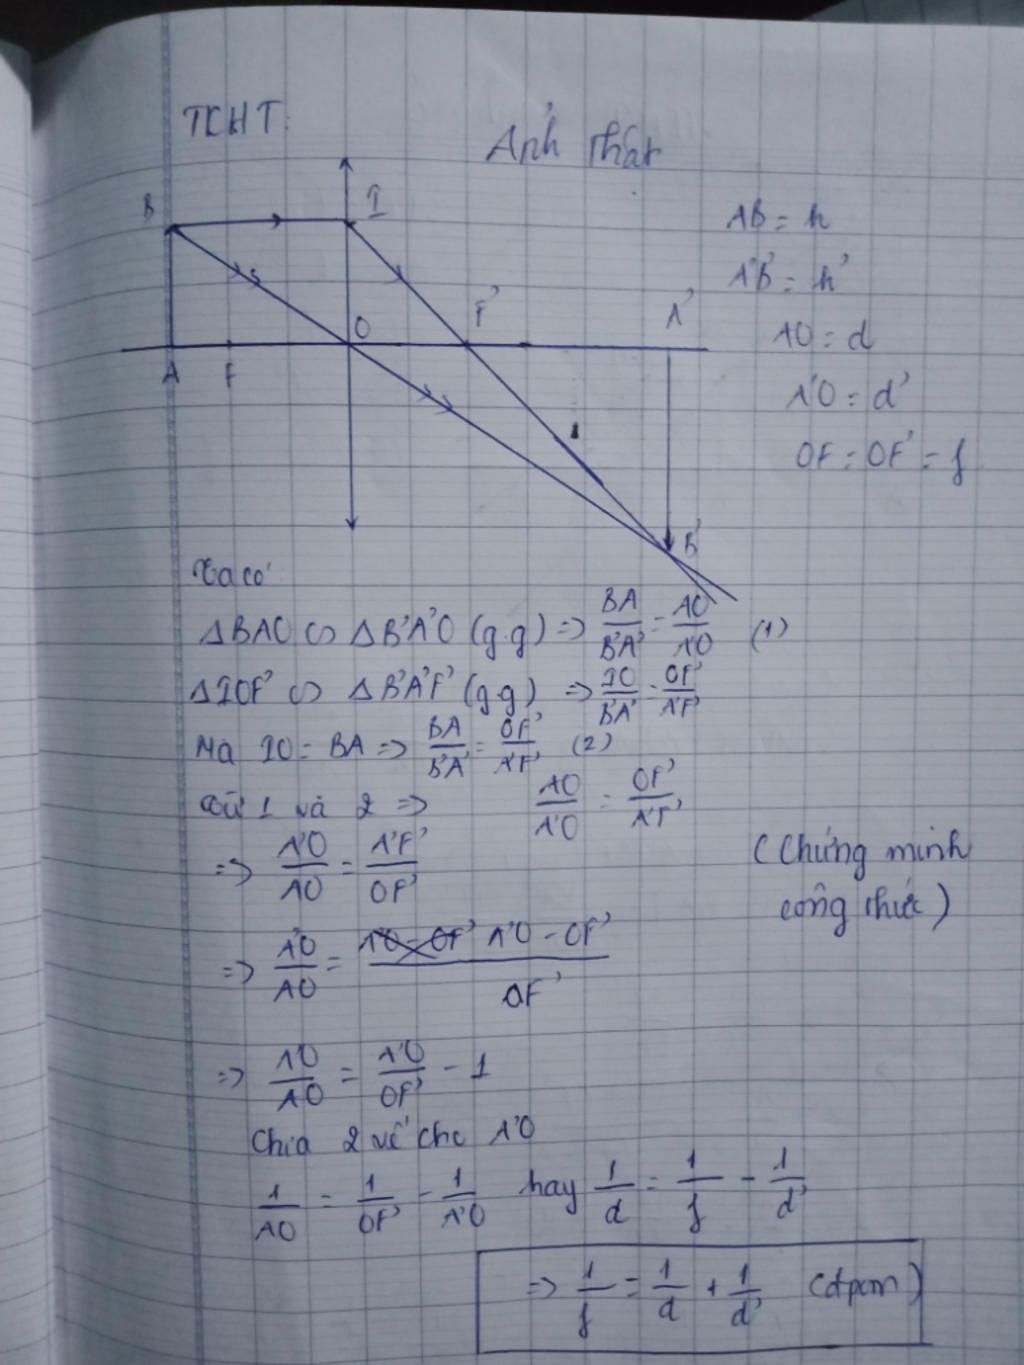 TKHT:
Ảnh thật
B
I
O
F'
A'
A
F
B'
AB = h
A'B' = h'
AO = d
A'O = d'
OF = OF' = f
Ta có:
ΔBAO ∽ ΔB'A'O (g.g) => BA/B'A' = AO/A'O (1)
ΔIOF' ∽ ΔB'A'F' (g.g) => IO/B'A' = OF'/A'F'
Mà IO = BA => BA/B'A' = OF'/A'F' (2)
Từ 1 và 2 => AO/A'O = OF'/A'F'
=> A'O/AO = A'F'/OF'
(Chứng minh
công thức)
=> A'O/AO = A'O - OF'/OF'
=> A'O/AO = A'O/OF' - 1
Chia 2 vế cho A'O
1/AO = 1/OF' - 1/A'O hay 1/d = 1/f - 1/d'
=> 1/f = 1/d + 1/d' (đpcm)